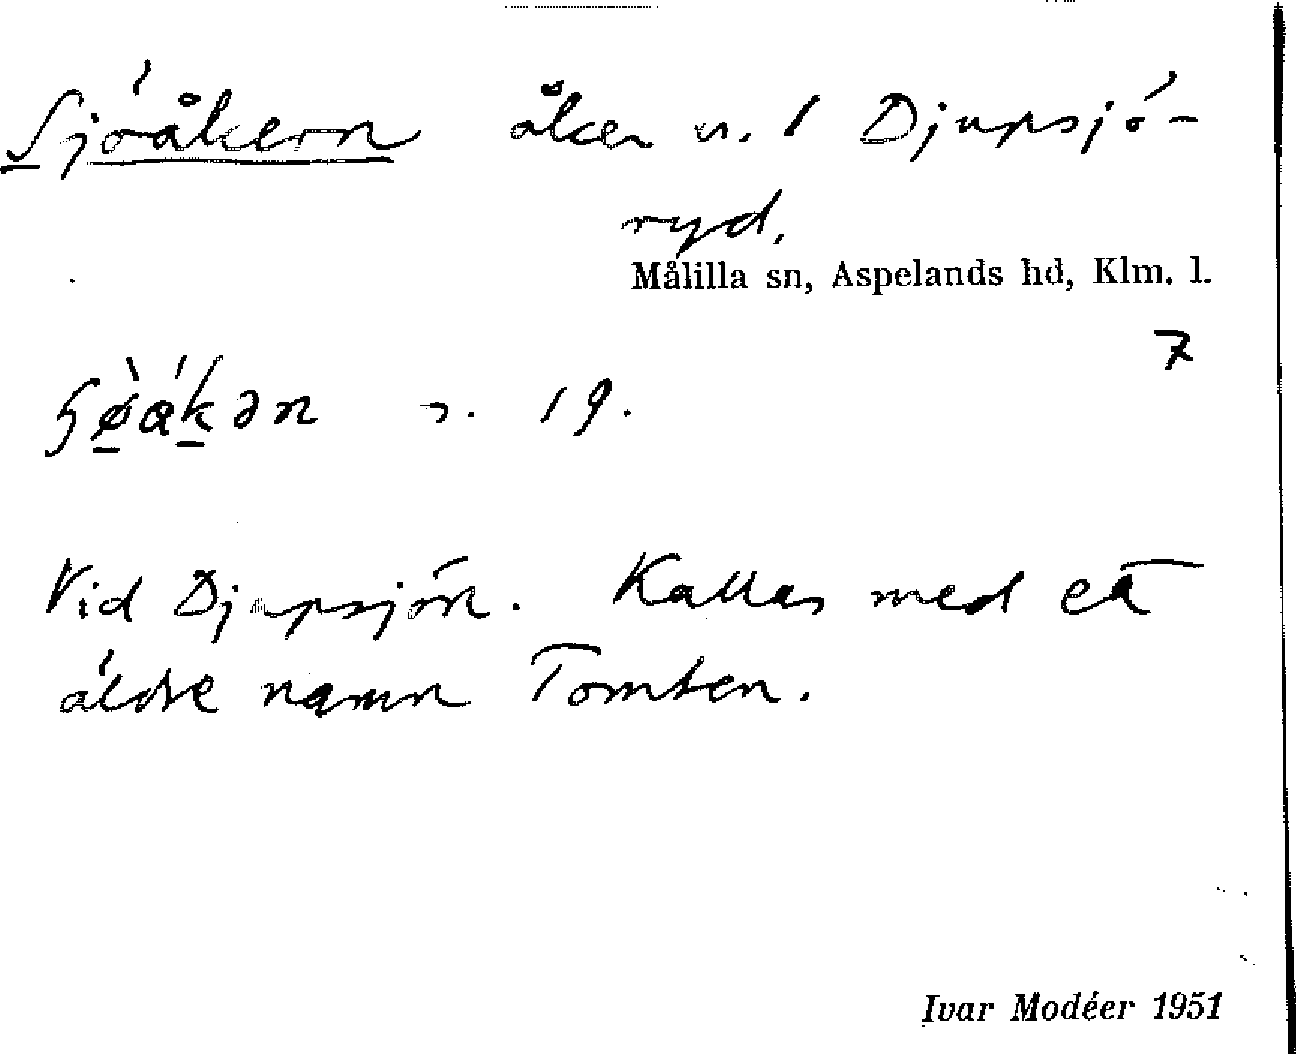 Sjöåkern åker n. 1 Djupsjö-
ryd.
Målilla sn, Aspelands hd, Klm. l.
7
19.
Vid Djupsjön. Kallas med ett
äldre namn Tomten.
Ivar Modéer 1951